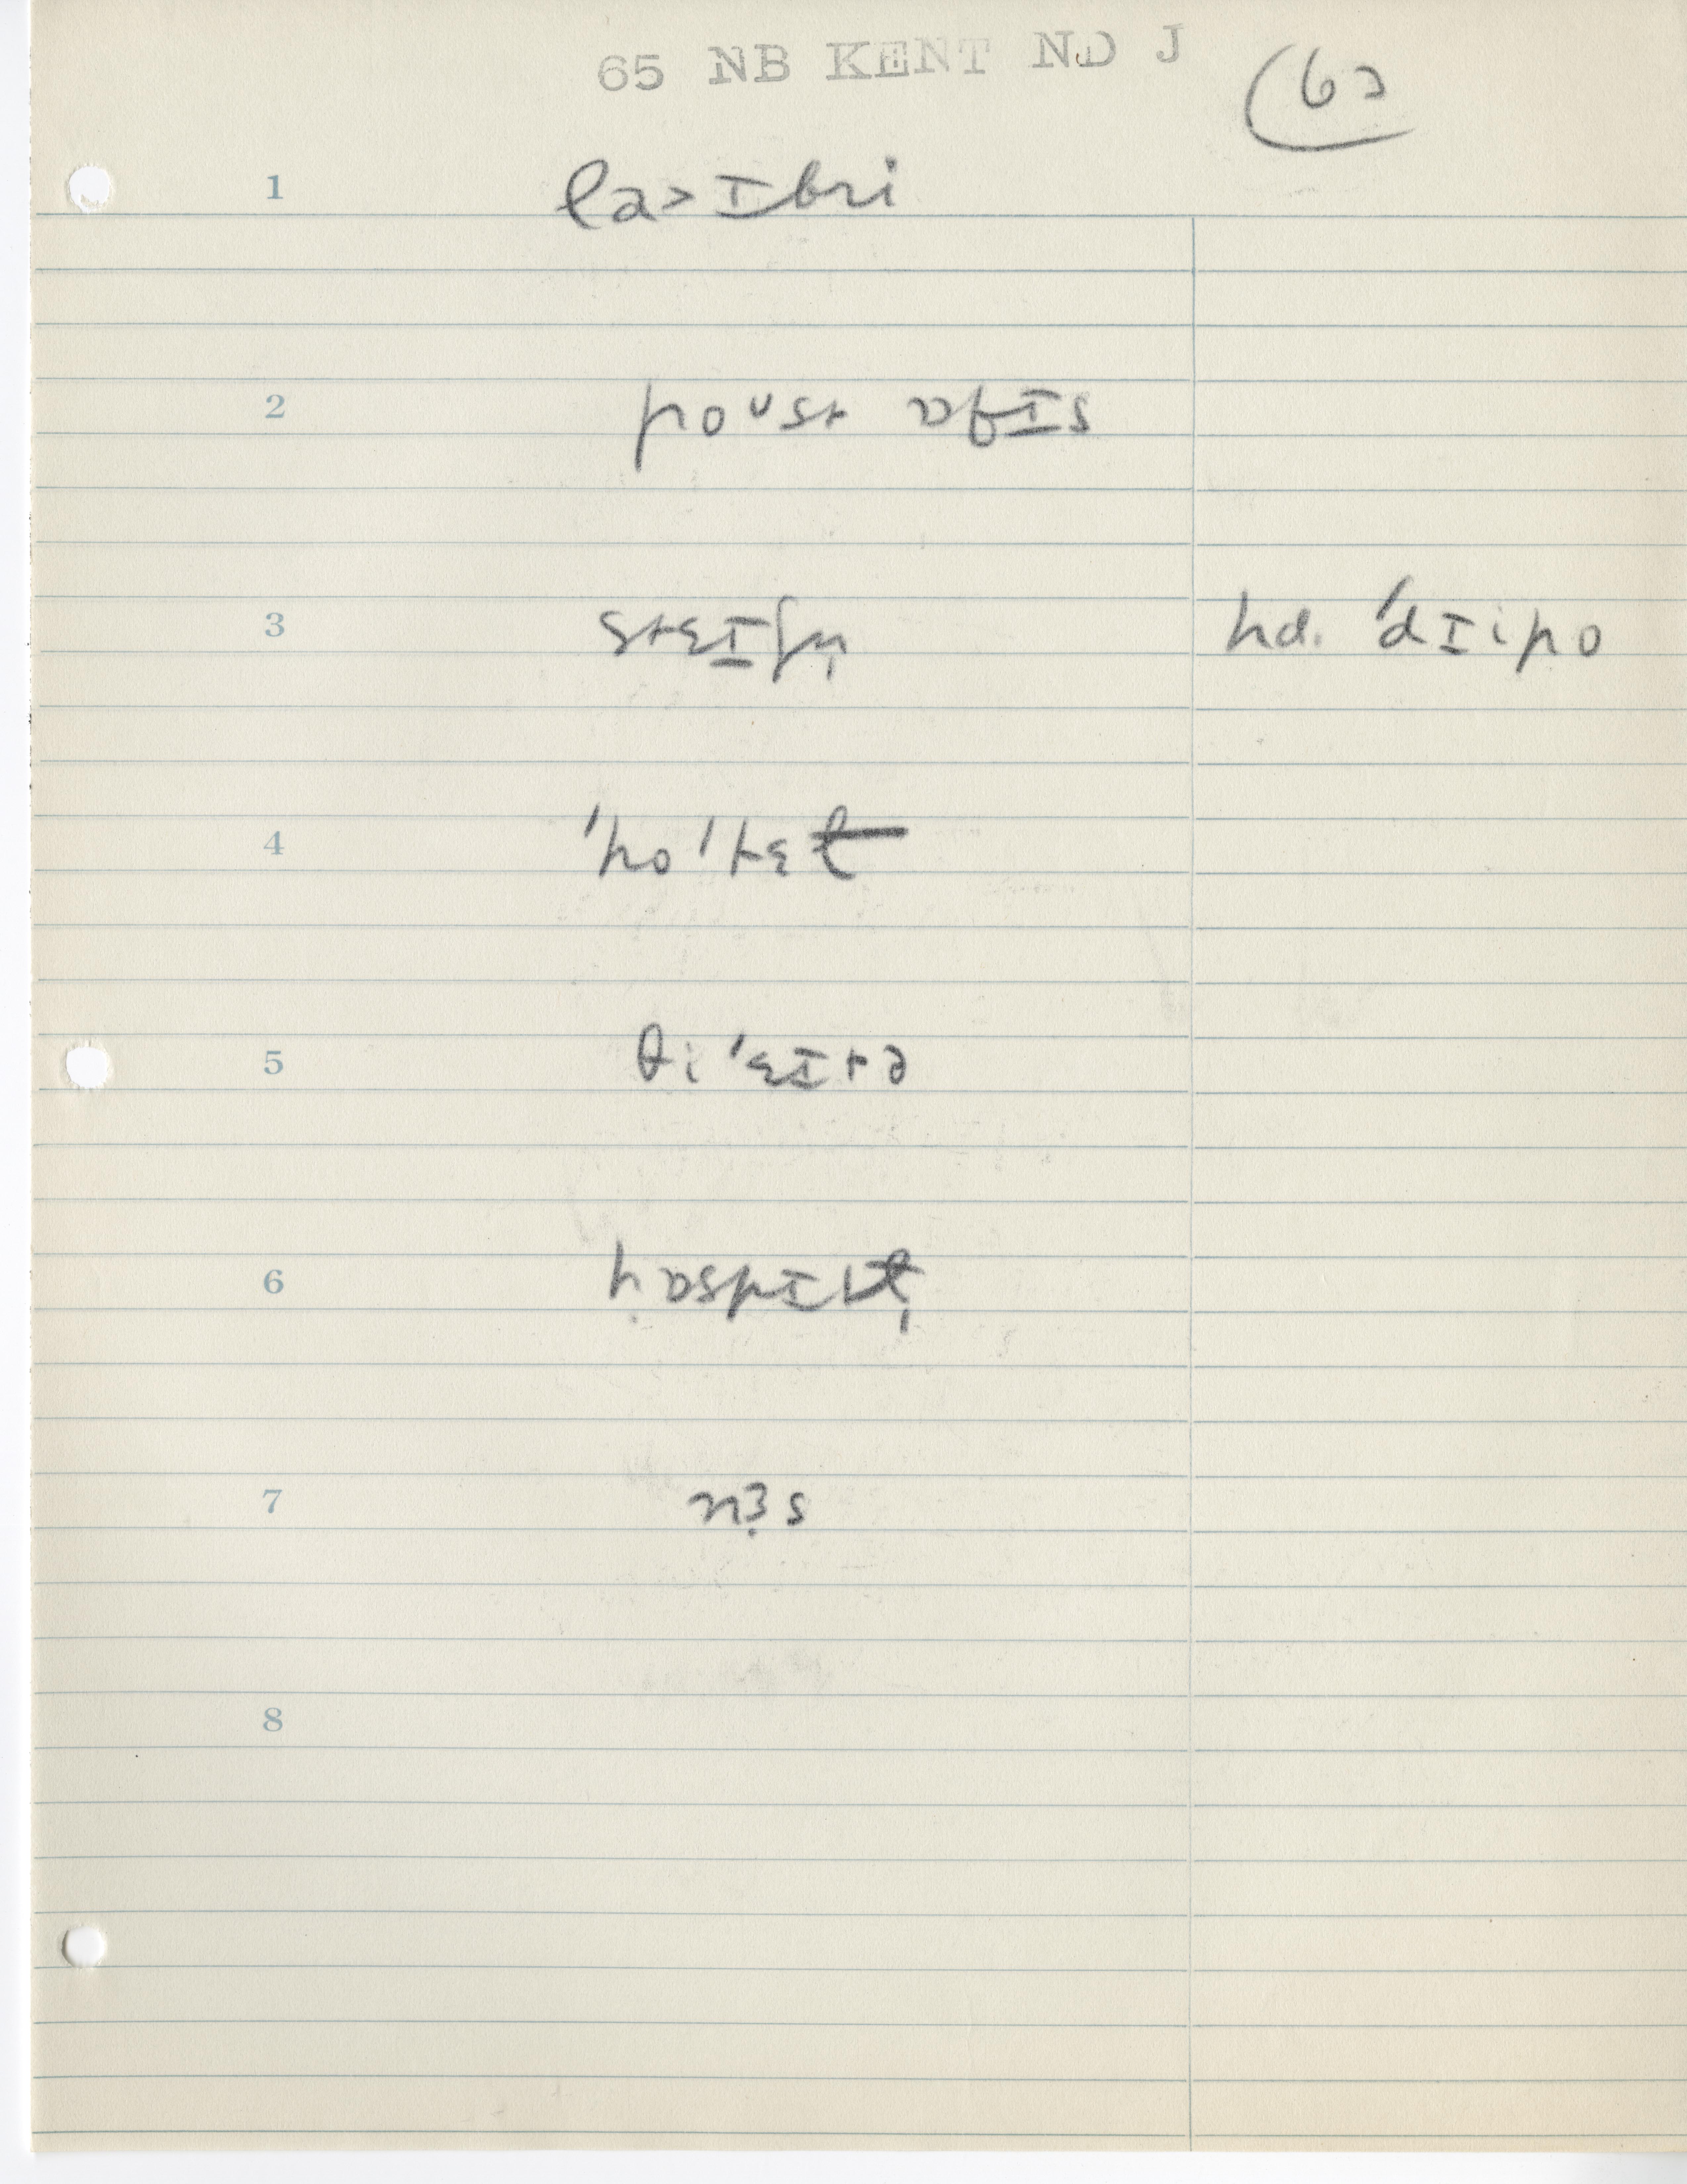 65 NB KENT ND J
(62
1 la>ɪbri
2 poᴜst ɒfɪs
3 stɛɪʃn̩ hd. ˈdɪipo
4 ˈhoˈtɛɫ
5 θiˈɛɪtə
6 hɒspɪtɫ̩
7 nɜs
8